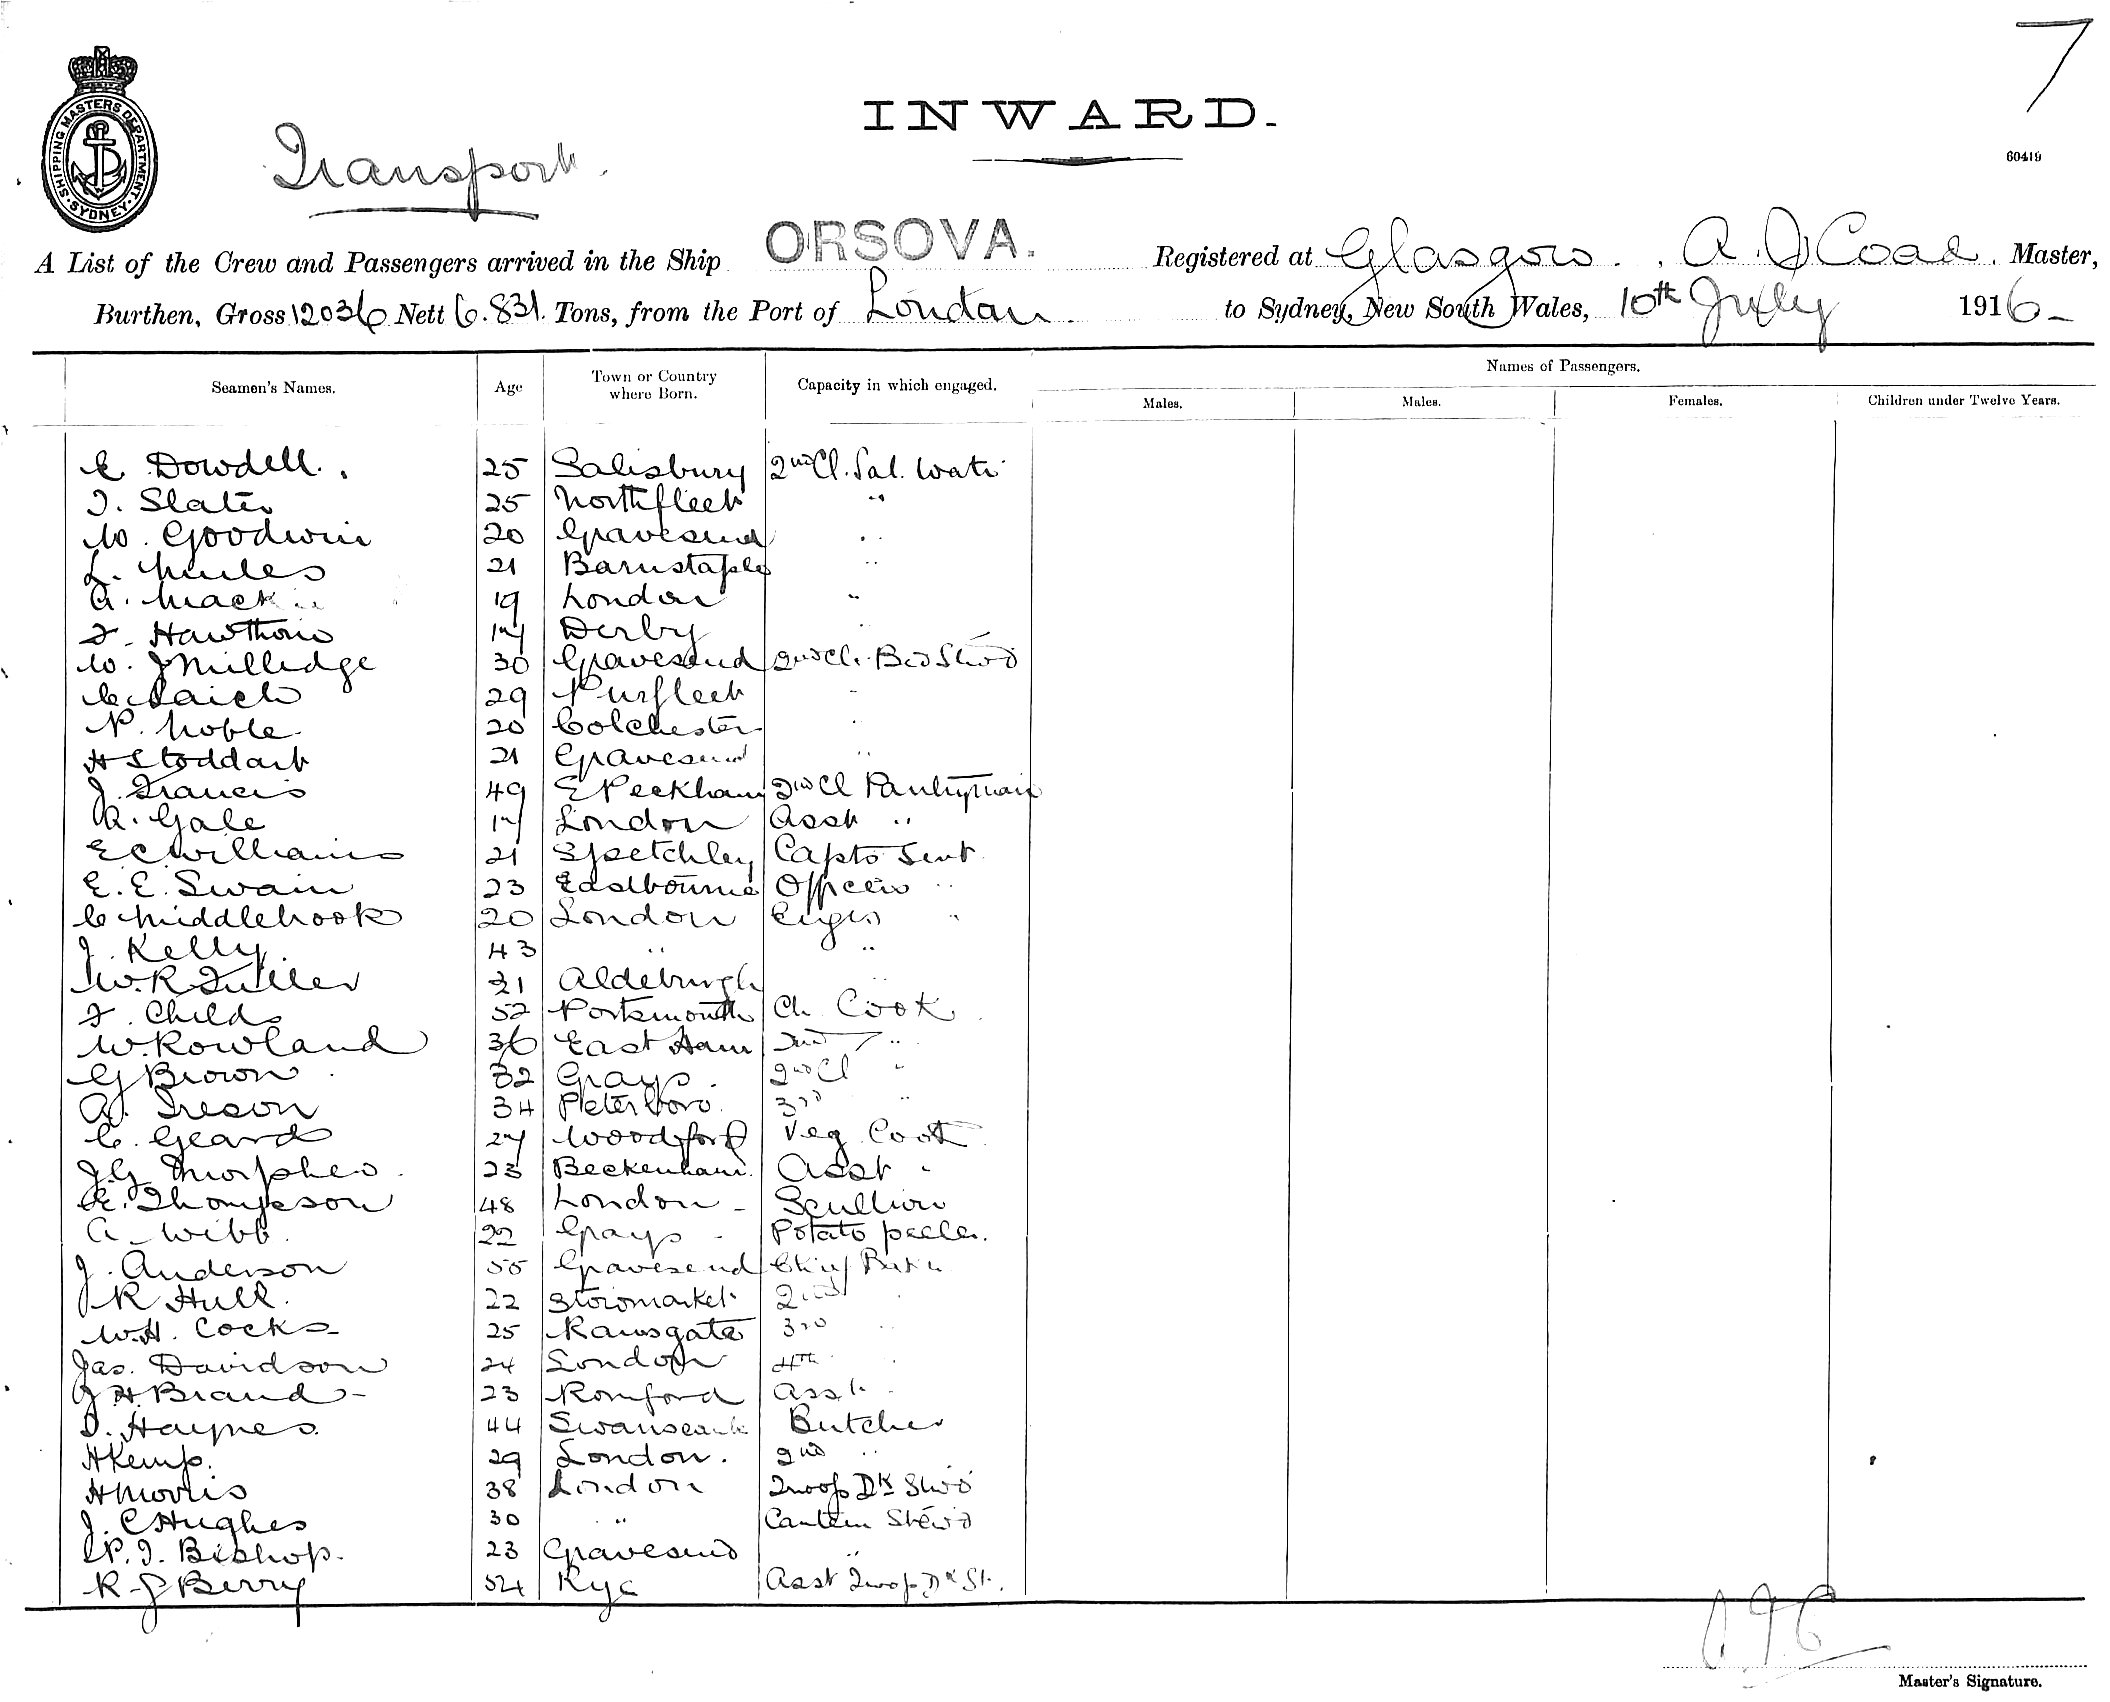 7
INWARD.
SHIPPING MASTERS DEPARTMENT SYDNEY
Transport.
60419
A List of the Crew and Passengers arrived in the Ship ORSOVA. Registered at Glasgow. A. J Coad. Master,
Burthen, Gross 12036 Nett 6.831. Tons, from the Port of London. to Sydney, New South Wales, 10th July 1916-
Names of Passengers.
Seamen's Names. Age Town or Country where Born. Capacity in which engaged. Males. Males. Females. Children under Twelve Years.
E Dowdell. 25 Salisbury 2nd Cl. Sal. Waitr
J. Slater 25 Northfleet "
W. Goodwin 20 Gravesend "
L. Mules 21 Barnstaple "
A. Mackie 19 London "
F. Hawthorn 17 Derby "
W. J Milledge 30 Gravesend 2nd Cl. Bd Stwd
C. Saich 29 Purfleet "
P. Noble 20 Colchester "
H Stoddart 21 Gravesend "
J. Francis 49 E Peckham 2nd Cl Pantryman
A. Gale 17 London Asst "
E C Williams 21 Spetchley Capts Sevt
E. E. Swain 23 Eastbourne Officers "
C Middlehook 20 London Engrs "
J. Kelly 43 " "
W. R Fuller 21 Aldeburgh "
F. Childs 52 Portsmouth Ch Cook
W. Rowland 36 East Ham 2nd "
G Brown 32 Grays. 2nd Cl "
A. Ireson 34 Peterboro. 3rd "
C. Geard 27 Woodford Veg Cook
J. G Morphew. 23 Beckenham. Asst "
E. Thompson 48 London - Scullion
A. Webb. 22 Grays - Potato peeler.
J. Anderson 55 Gravesend Chief Baker
J R Hull. 22 Stowmarket 2nd "
W. H. Cocks- 25 Ramsgate 3rd "
Jas. Davidson 24 London 4th
J H Brand- 23 Romford Asst.
D. Haynes. 44 Swanscombe Butcher
H Kemp. 29 London. 2nd "
H Morris 38 London Troop Dk Stwd
J. C Hughes 30 " Canteen Stewd
P. J. Bishop. 23 Gravesend "
R J Berry 52 Rye Asst Troop Dk St.
Master's Signature.